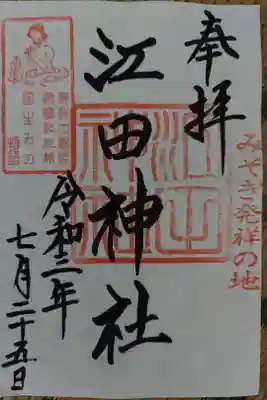 奉拝
みそぎ発祥の地
江田神社
令和三年
七月二十五日
国生みの